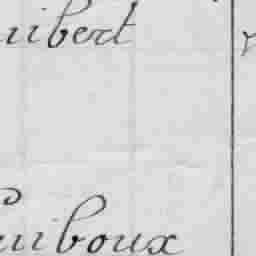 uibert
uiboux